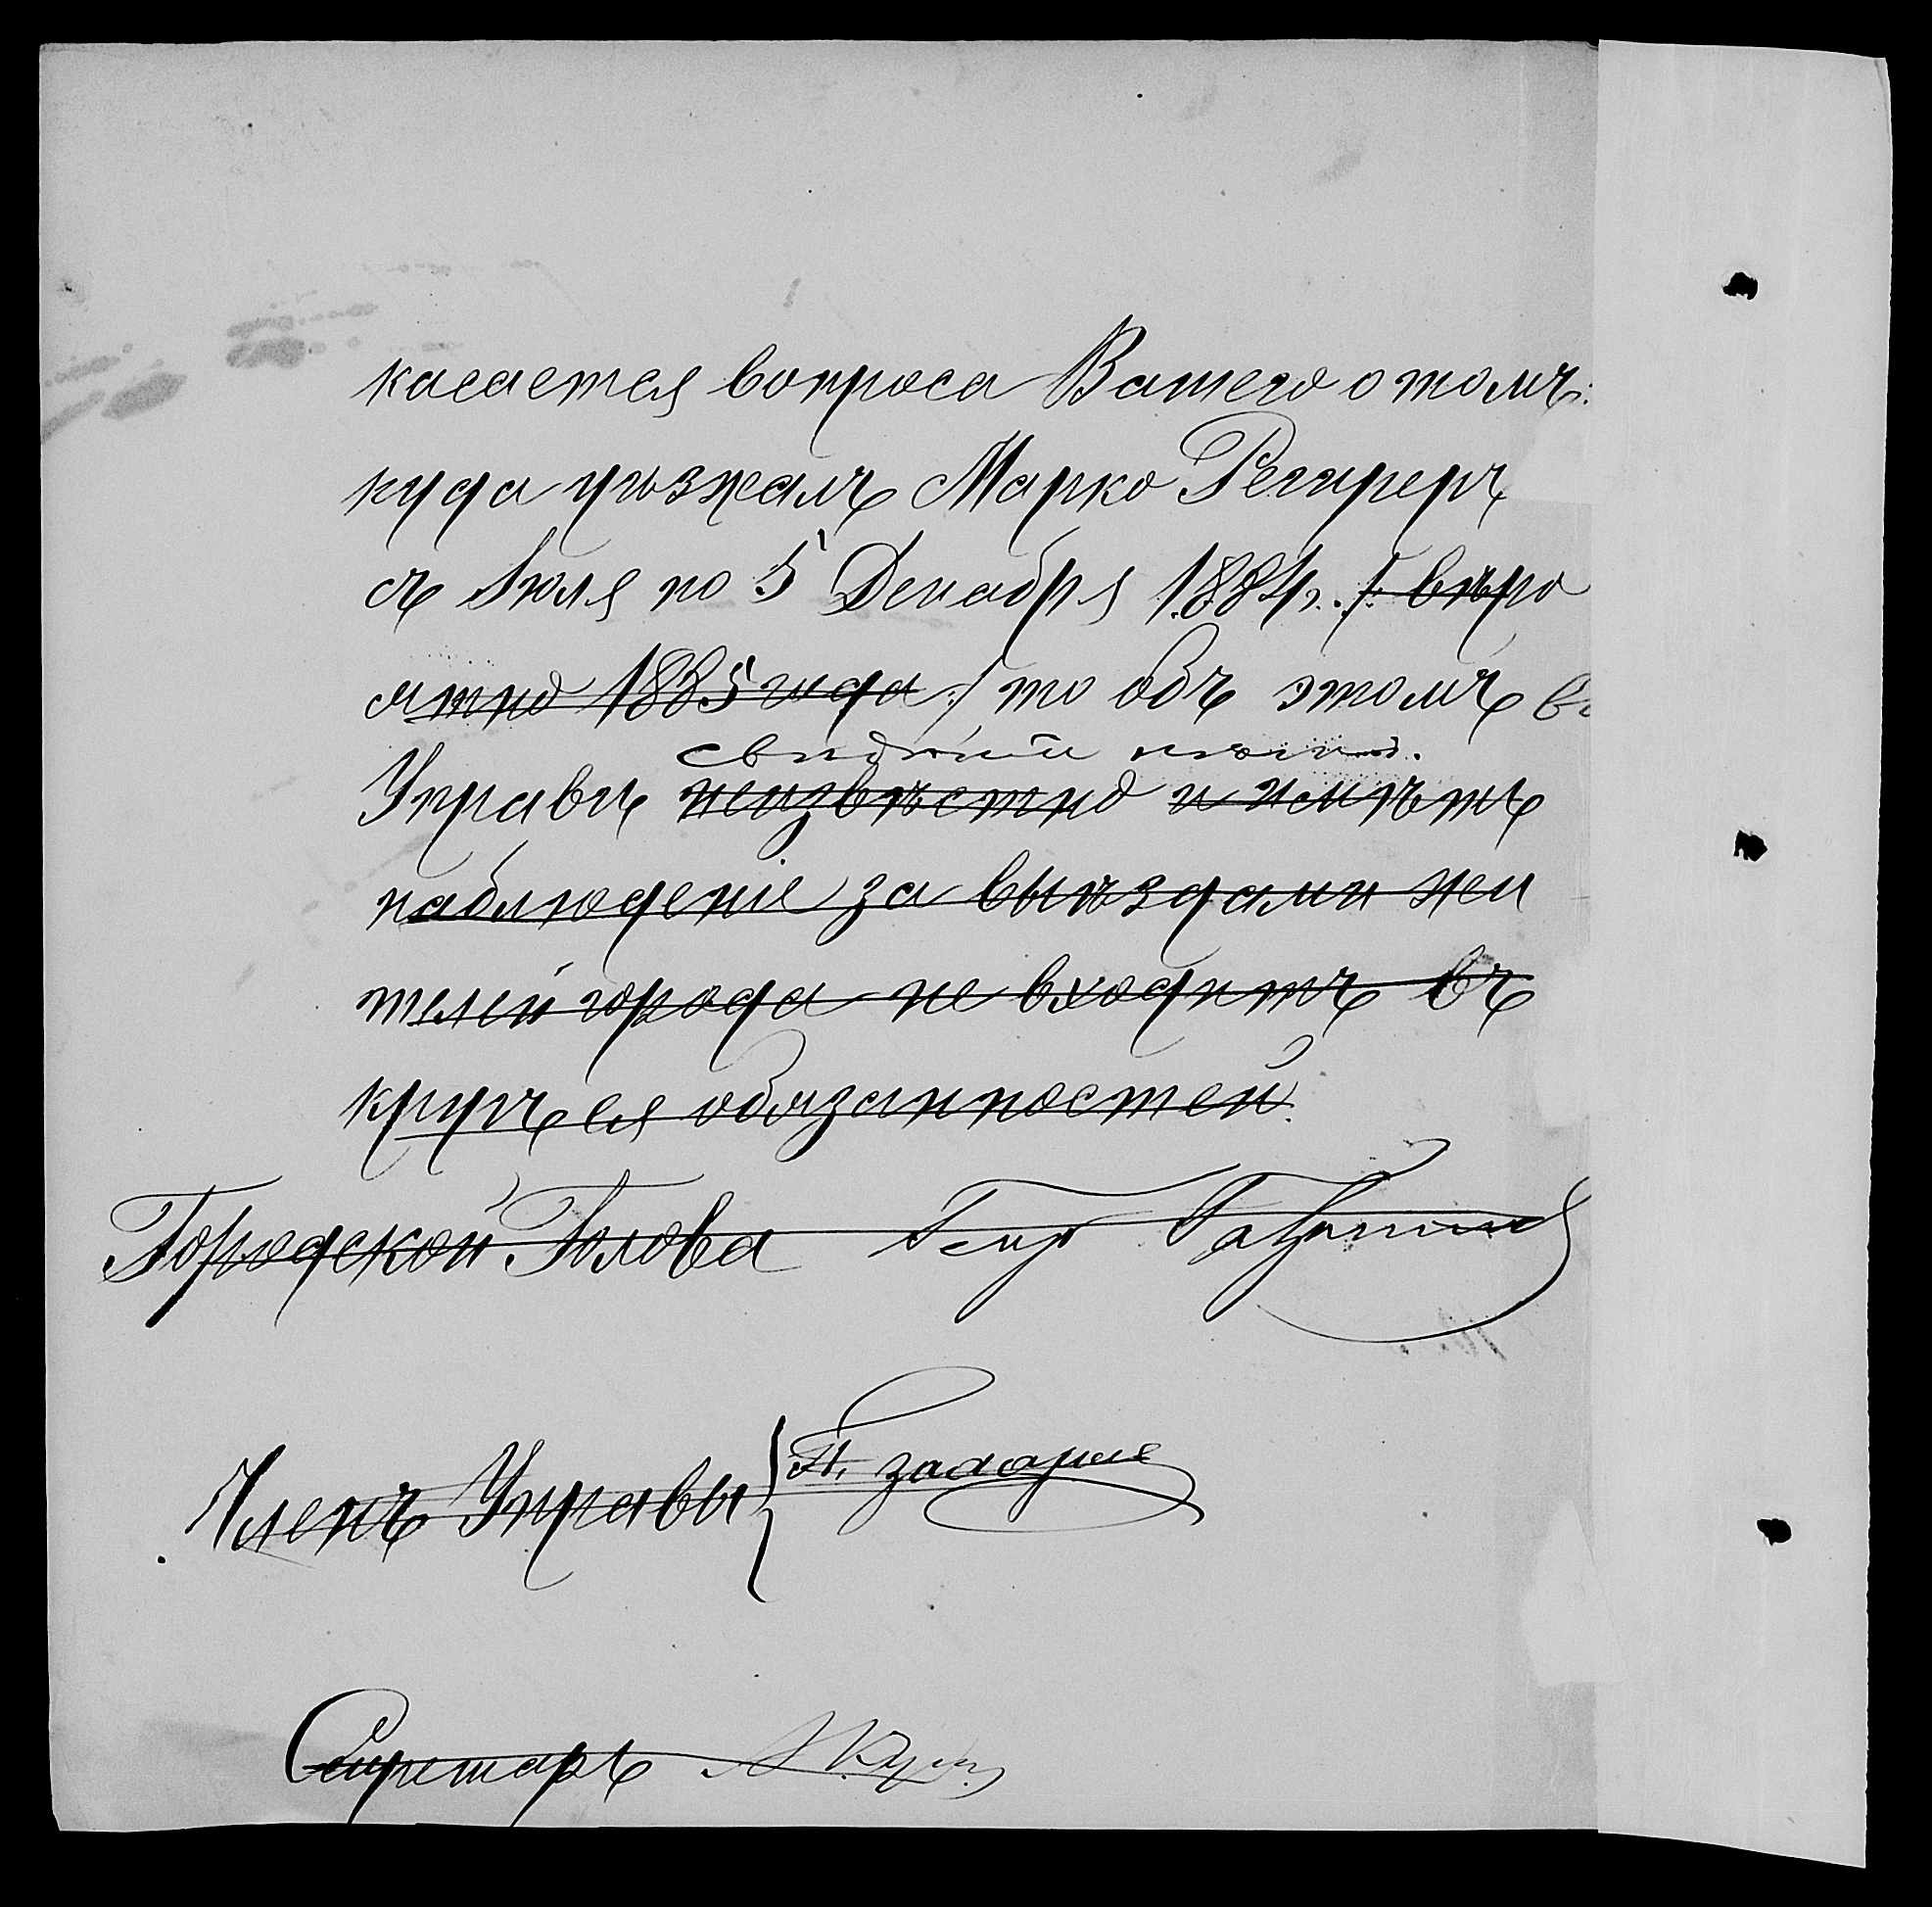 касается вопроса Вашего о томъ:
куда уѣзжалъ Марко Регареръ
съ Іюля по 5 Декабря 1884г. /: вѣро
ятно 1885 года :/ то объ этомъ в
свѣдѣній нѣтъ.
Управѣ неизвѣстно и имѣть
наблюденіе за выѣздами жи
телей города не входитъ въ
кругъ ея обязанностей.
Городской Голова
Членъ Управы
Секретарь